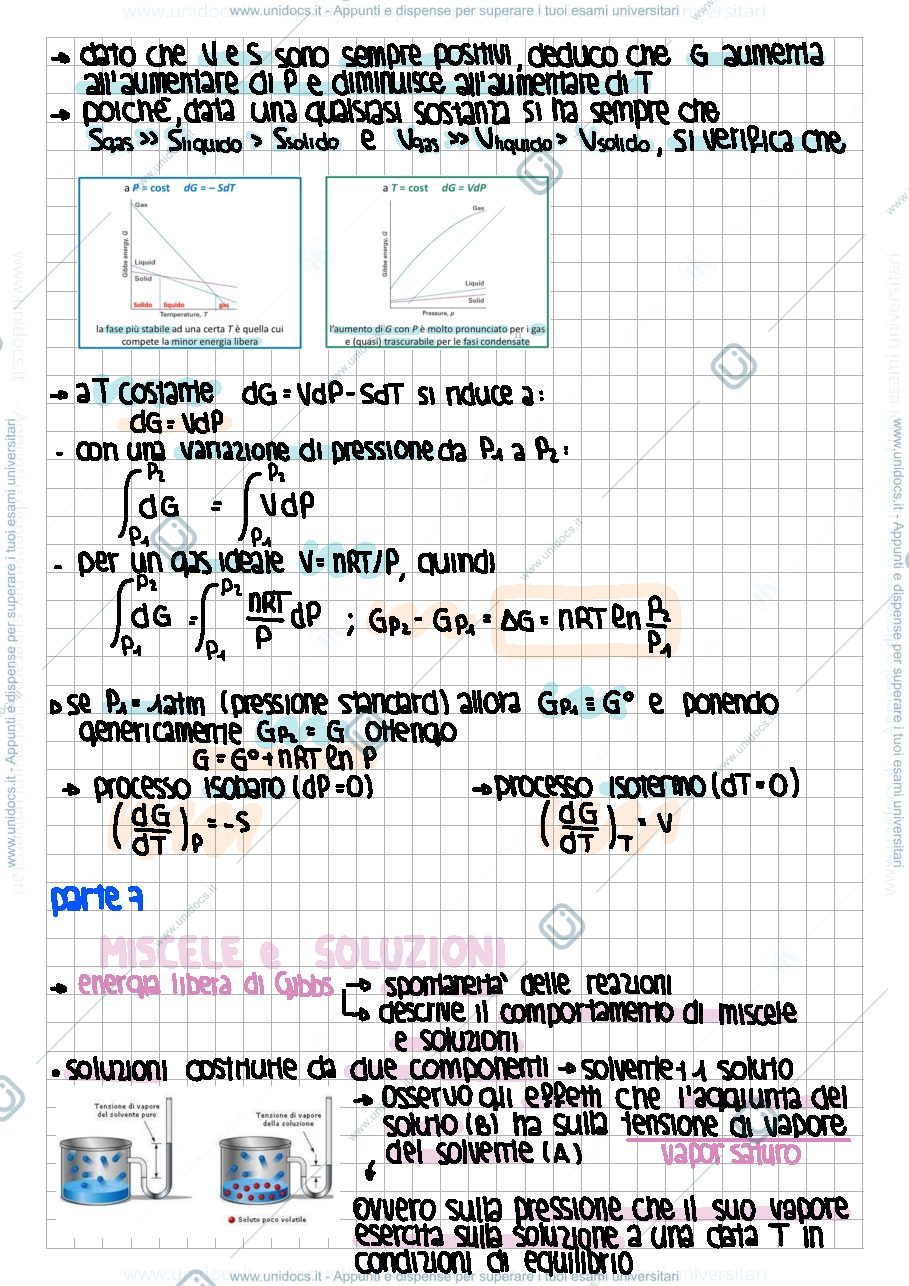 www.unidocs.it - Appunti e dispense per superare i tuoi esami universitari
→ dato che V e S sono sempre positivi, deduco che G aumenta
all'aumentare di P e diminuisce all'aumentare di T
→ poiché, data una qualsiasi sostanza si ha sempre che
Sgas >> Sliquido > Ssolido e Vgas >> Vliquido > Vsolido, si verifica che
a P = cost dG = – SdT
Gas
Liquid
Solid
Gibbs energy, G
Solido liquido gas
Temperature, T
la fase più stabile ad una certa T è quella cui
compete la minor energia libera
a T = cost dG = VdP
Gas
Liquid
Solid
Gibbs energy, G
Pressure, p
l'aumento di G con P è molto pronunciato per i gas
e (quasi) trascurabile per le fasi condensate
→ a T costante dG = VdP - SdT si riduce a:
dG = VdP
- con una variazione di pressione da P₁ a P₂:
∫P₁P₂ dG = ∫P₁P₂ VdP
- per un gas ideale V = nRT/P, quindi
∫P₁P₂ dG = ∫P₁P₂ nRT/P dP ; GP₂ - GP₁ = ΔG = nRT ln P₂/P₁
▷ se P₁ = 1atm (pressione standard) allora GP₁ ≡ G° e ponendo
genericamente GP₂ = G ottengo
G = G° + nRT ln P
→ processo isobaro (dP = 0) → processo isotermo (dT = 0)
(dG/dT)P = -S (dG/dT)T = V
parte 7
MISCELE e SOLUZIONI
→ energia libera di Gibbs → spontaneità delle reazioni
↳ descrive il comportamento di miscele
e soluzioni
• soluzioni costituite da due componenti → solvente + 1 soluto
→ osservo gli effetti che l'aggiunta del
soluto (B) ha sulla tensione di vapore
del solvente (A) vapor saturo
ovvero sulla pressione che il suo vapore
esercita sulla soluzione a una data T in
condizioni di equilibrio
Tensione di vapore
del solvente puro
Tensione di vapore
della soluzione
Soluto poco volatile
www.unidocs.it - Appunti e dispense per superare i tuoi esami universitari
www.unidocs.it - Appunti e dispense per superare i tuoi esami universitari
www.unidocs.it - Appunti e dispense per superare i tuoi esami universitari